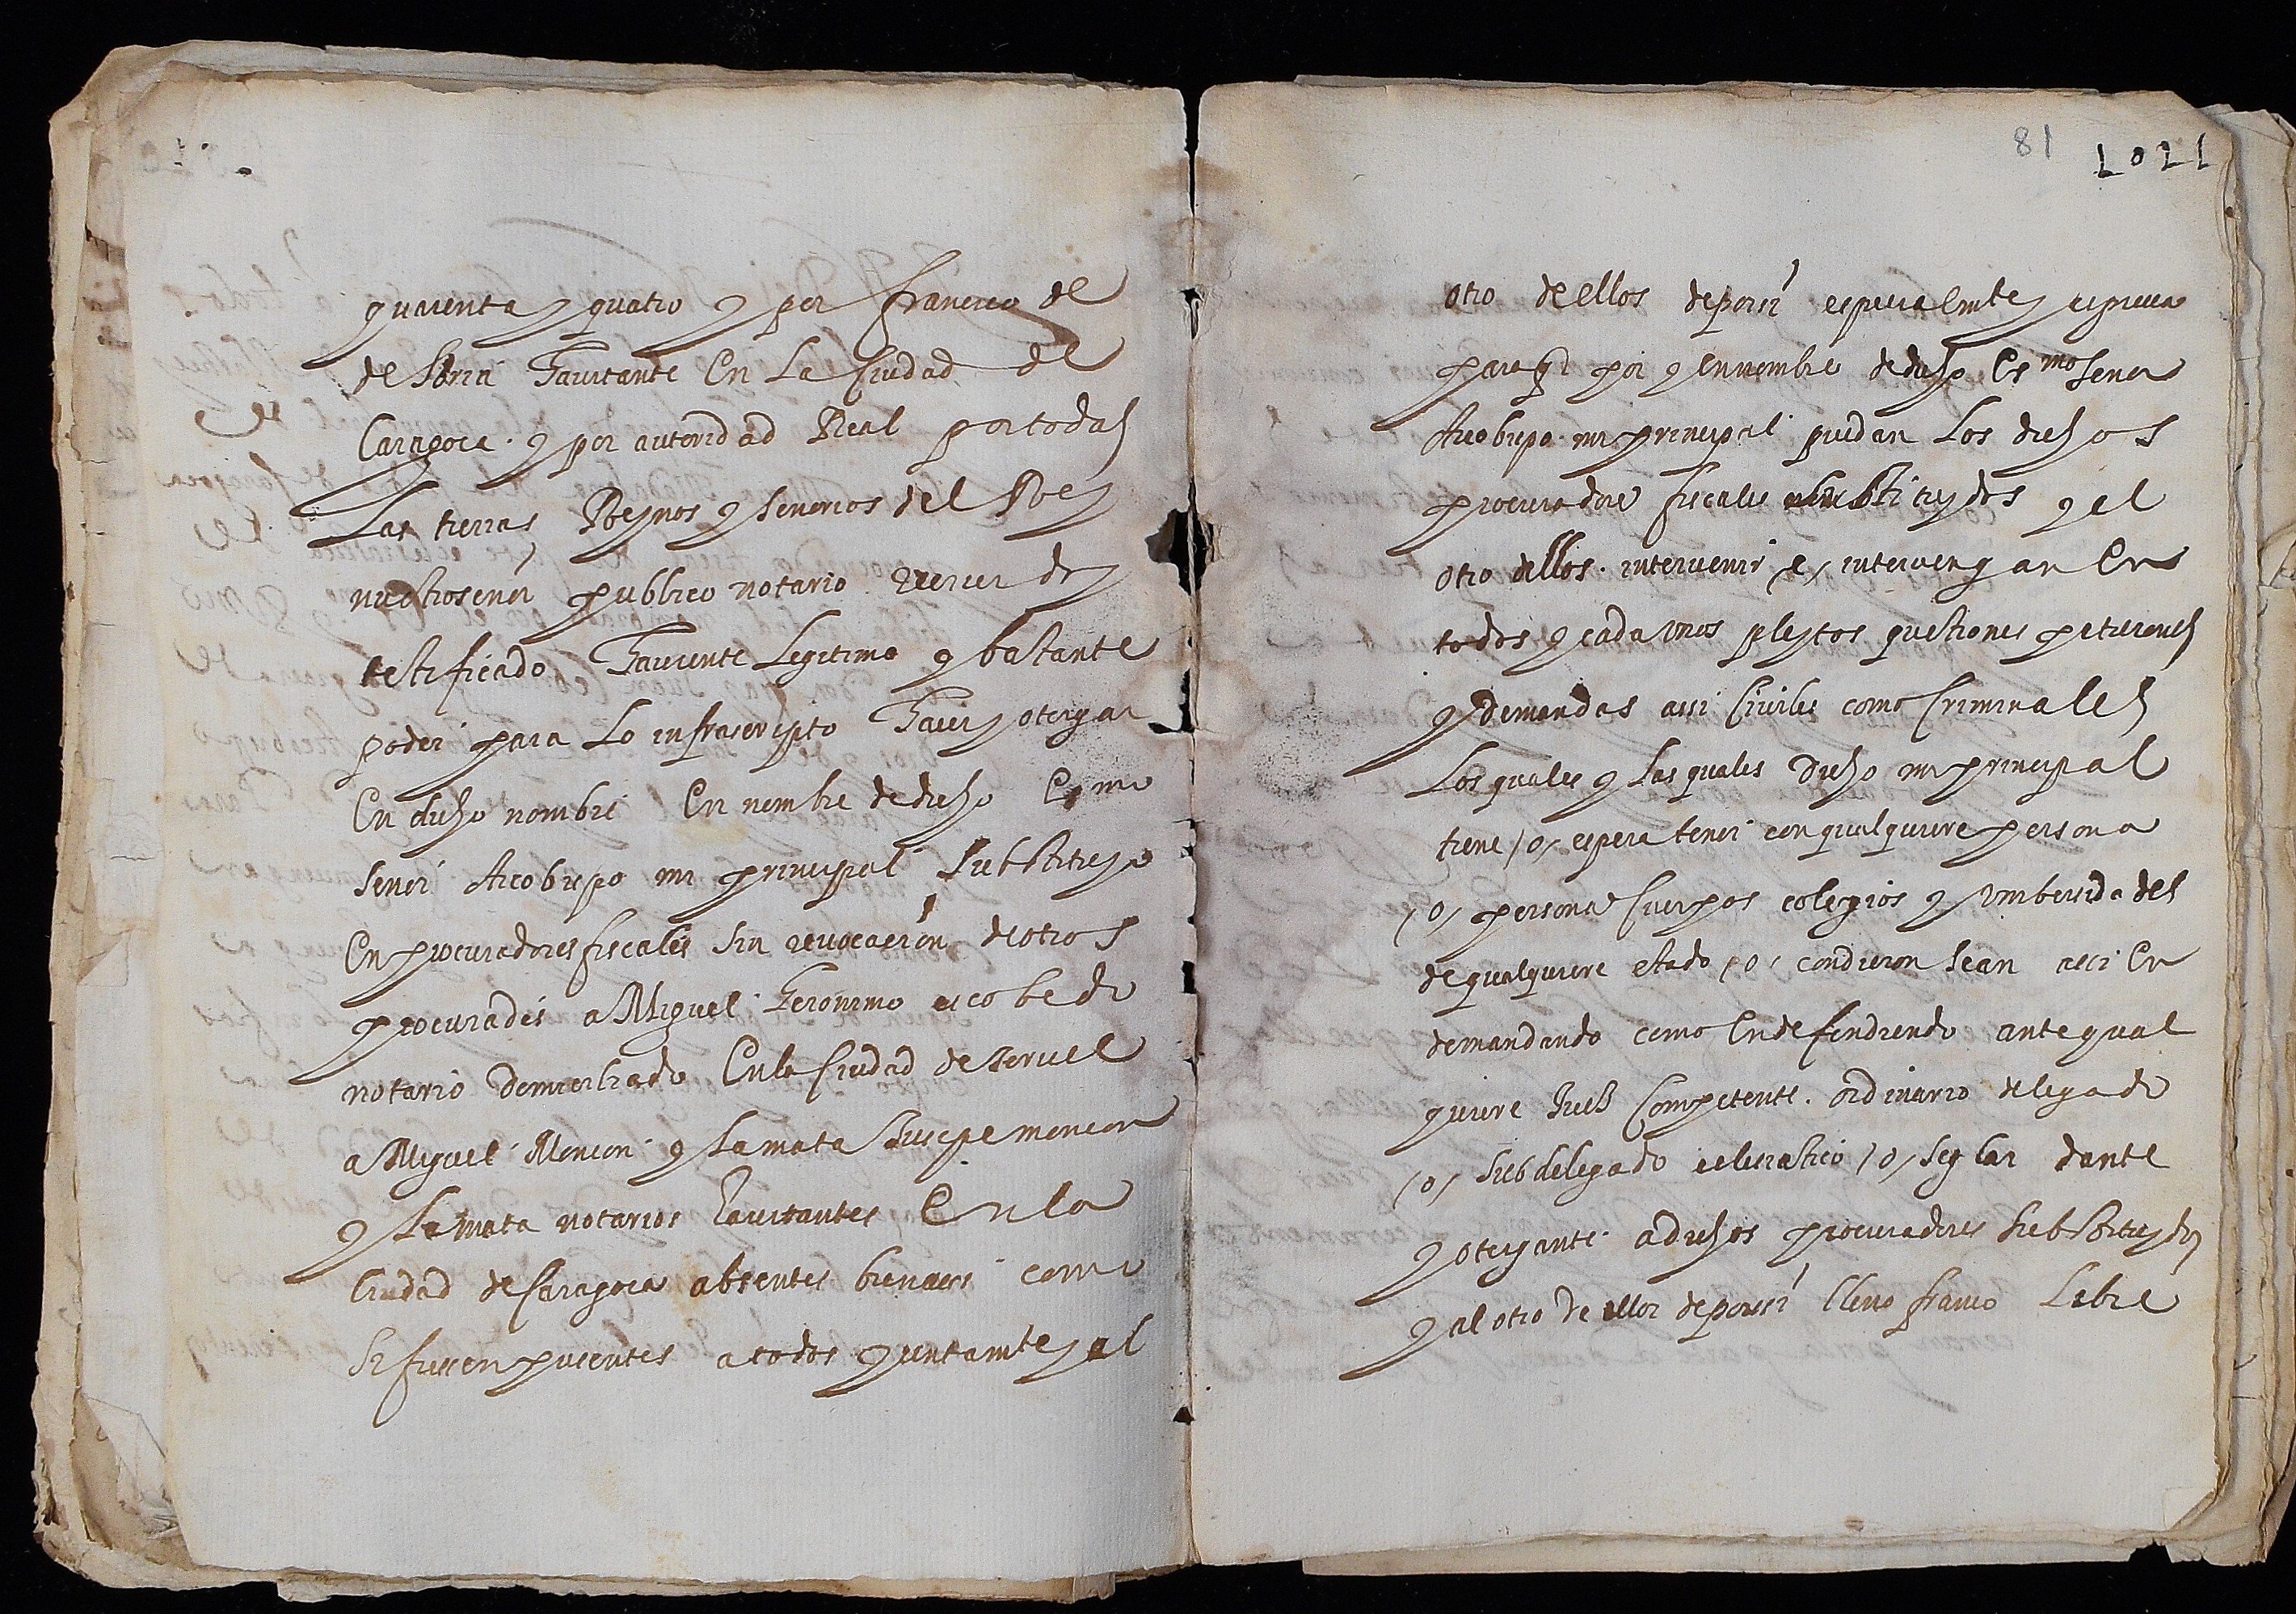 quarenta y quatro y por francisco de
de Soria Hauitante En La Ciudad de
Caragoca. y por autoridad Real por todas
Las tierras Reynos y senorios del Rey
nuestro senor publico notario reciui do y
testificado Hauiente Legitimo y bastante
poder para Lo infrascripto Hacer y otorgar
En dicho nombre En nombre de dicho Exmo
senor Arcobispo mi principal substituyo
En procuradores fiscales sin reuocacion de otros
procurades a Miguel Geronimo escobedo
notario domiciliado En la Ciudad de teruel
a Miguel Moncon y La mata Jusepe moncon
y La mata notarios hauitantes En la
Ciudad de Caragoca absentes bien assi como
si fuessen presentes a todos y juntamte y al
81 1011
otro de ellos de por si especialmte y espressa
para q por y en nombre de dicho Exmo senor
Arcobispo mi principal puedan Los dichos
procuradores fiscales substituydos y el
otro dellos. interuenir /e/ interuengan En
todos y cada unos pleytos questiones peticiones
y demandas assi Ciuiles como Criminales
Los quales y Las quales dicho mi principal
tiene /o/ espera tener con qualquiere persona
/o/ personas Cuerpos colegios y Vnibersidades
de qualquiere estado /o/ condicion sean assi En
demandando como En defendiendo ante qual
quiere Juez Competente. ordinario delegado
/o/ subdelegado eclesiastico /o/ seglar dante
y otorgante a dichos procuradores substituydos
y al otro de ellos de por si lleno franco Libre